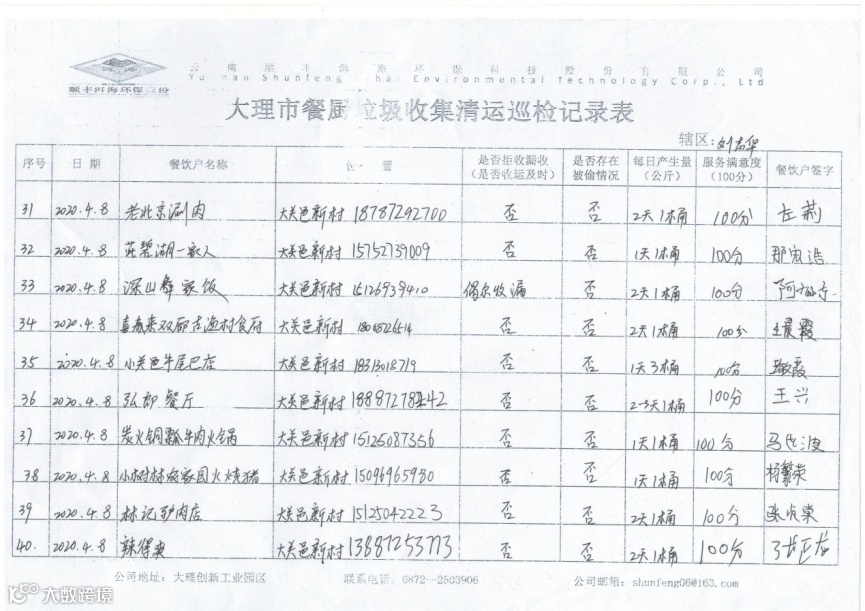 云南顺丰洱海环保科技股份有限公司
Yunnan Shunfeng Erhai Environmental Technology Corp., Ltd
顺丰洱海环保股份
大理市餐厨垃圾收集清运巡检记录表
辖区:
序号 日期 餐饮户名称 位置 是否拒收漏收(是否收运及时) 是否存在被偷情况 每日产生量(公斤) 服务满意度(100分) 餐饮户签字
31 2020.4.8 老北京涮肉 大关邑新村 18787292700 否 否 2天1桶 100分 左莉
32 2020.4.8 茈碧湖一家人 大关邑新村 15752739009 否 否 1天1桶 100分
33 2020.4.8 深山彝家饭 大关邑新村 15126939410 偶尔收漏 否 2天1桶 100分
34 2020.4.8 大关邑新村 否 否 2天1桶 100分
35 2020.4.8 小关邑牛尾巴店 大关邑新村 18313018719 否 否 1天3桶 100分
36 2020.4.8 弘郎餐厅 大关邑新村 否 否 2-3天1桶 100分 王兴
37 2020.4.8 炭火铜瓢牛肉火锅 大关邑新村 15125087356 否 否 1天1桶 100分
38 2020.4.8 大关邑新村 15096965980 否 否 1天1桶 100分 杨繁荣
39 2020.4.8 林记驴肉店 大关邑新村 15125042223 否 否 2天1桶 100分
40. 2020.4.8 辣得爽 大关邑新村 13887253773 否 否 2天1桶 100分
公司地址:大理创新工业园区 联系电话:0872—2503906 公司邮箱:shunfeng06@163.com
大数跨境